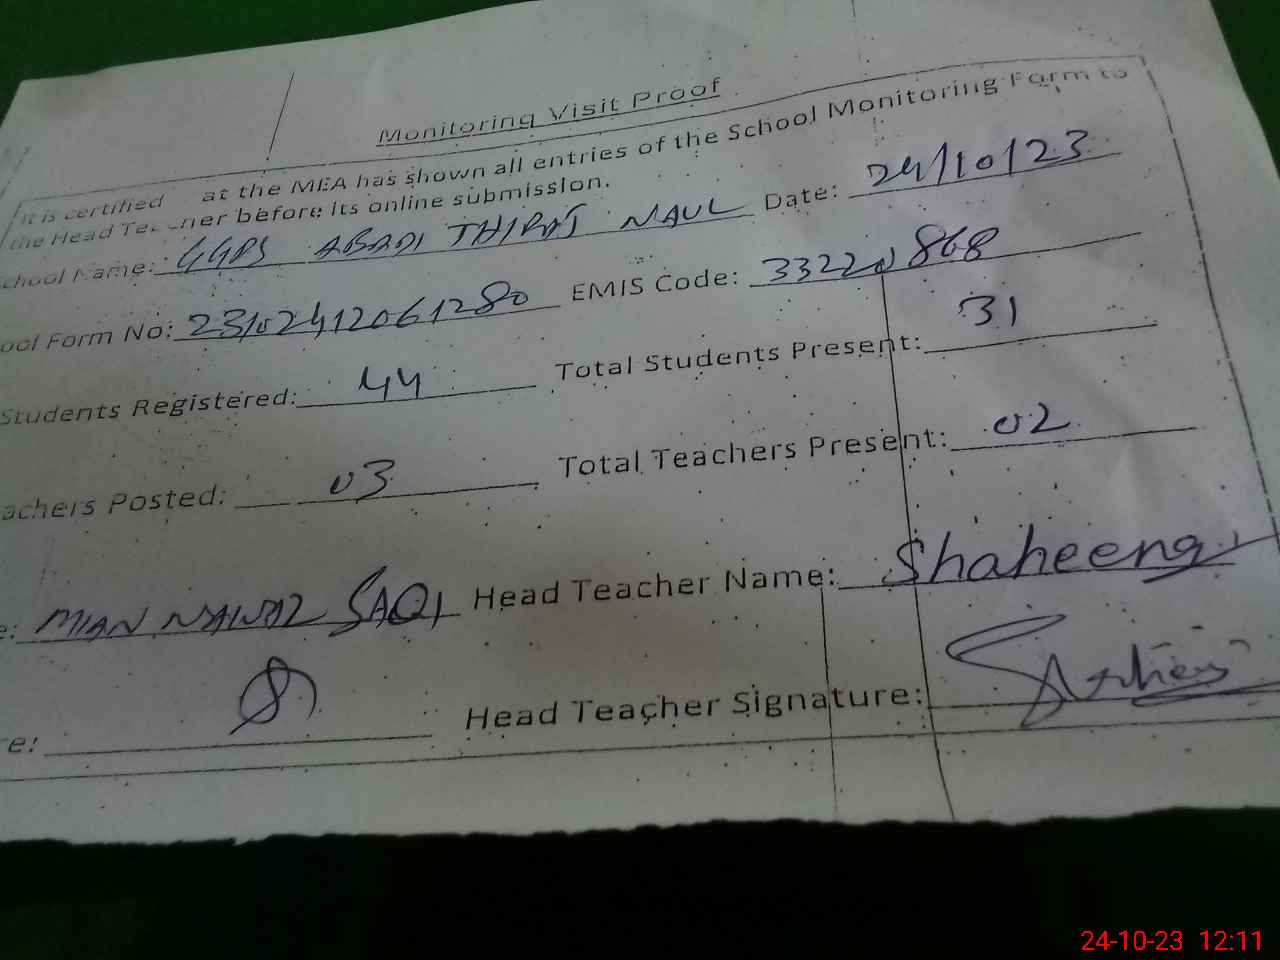 Monitoring Visit Proof
It is certified at the MEA has shown all entries of the School Monitoring Form to
the Head Te ner before its online submission.
chool Name: GGPS ABADI THIRAJ NAUL Date: 24/10/23
ool Form No: 23102412061280 EMIS Code: 33220868
Students Registered: 44 Total Students Present: 31
achers Posted: 03 Total Teachers Present: 02
e: MIAN NAWAZ SAQI Head Teacher Name: Shaheena
re: Head Teacher Signature:
24-10-23 12:11